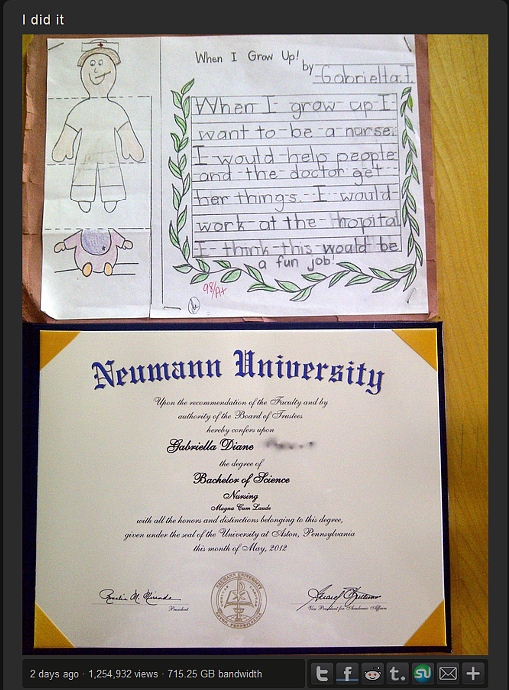 I did it
When I Grow Up!
by Gabriella.T.
When I grow up I
want to be a nurse.
I would help people
and the doctor get
her things. I would
work at the hopital
I think this would be
a fun job!
98/A+
Neumann University
Upon the recommendation of the Faculty and by
authority of the Board of Trustees
hereby confers upon
Gabriella Diane
the degree of
Bachelor of Science
Nursing
Magna Cum Laude
with all the honors and distinctions belonging to this degree,
given under the seal of the University at Aston, Pennsylvania
this month of May, 2012
President
Vice President for Academic Affairs
2 days ago · 1,254,932 views · 715.25 GB bandwidth